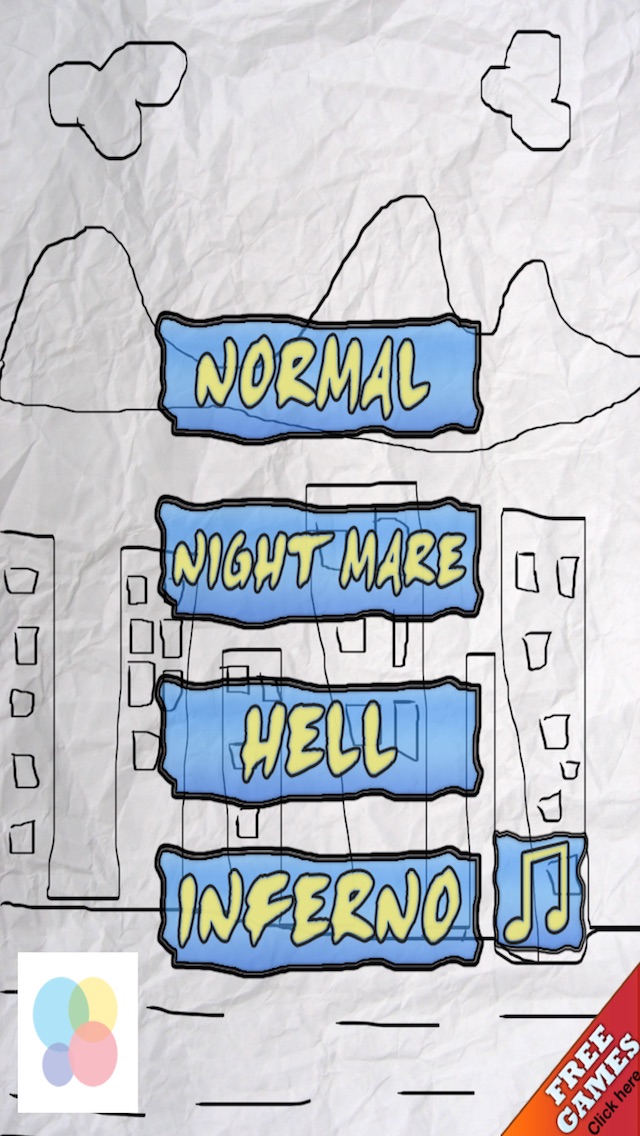 NORMAL
NIGHT MARE
HELL
INFERNO
FREE
GAMES
Click here